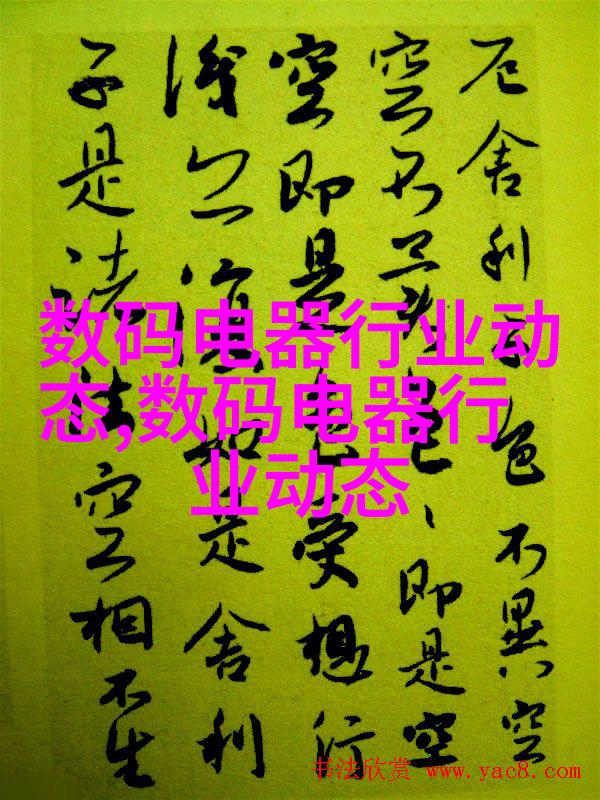 厄舍利子色不異空
空不異色、即是空
空即是色受想行
識亦復如是舍利
子是諸法空相不生
数码电器行业动
态,数码电器行
业动态
书法欣赏 www.yac8.com